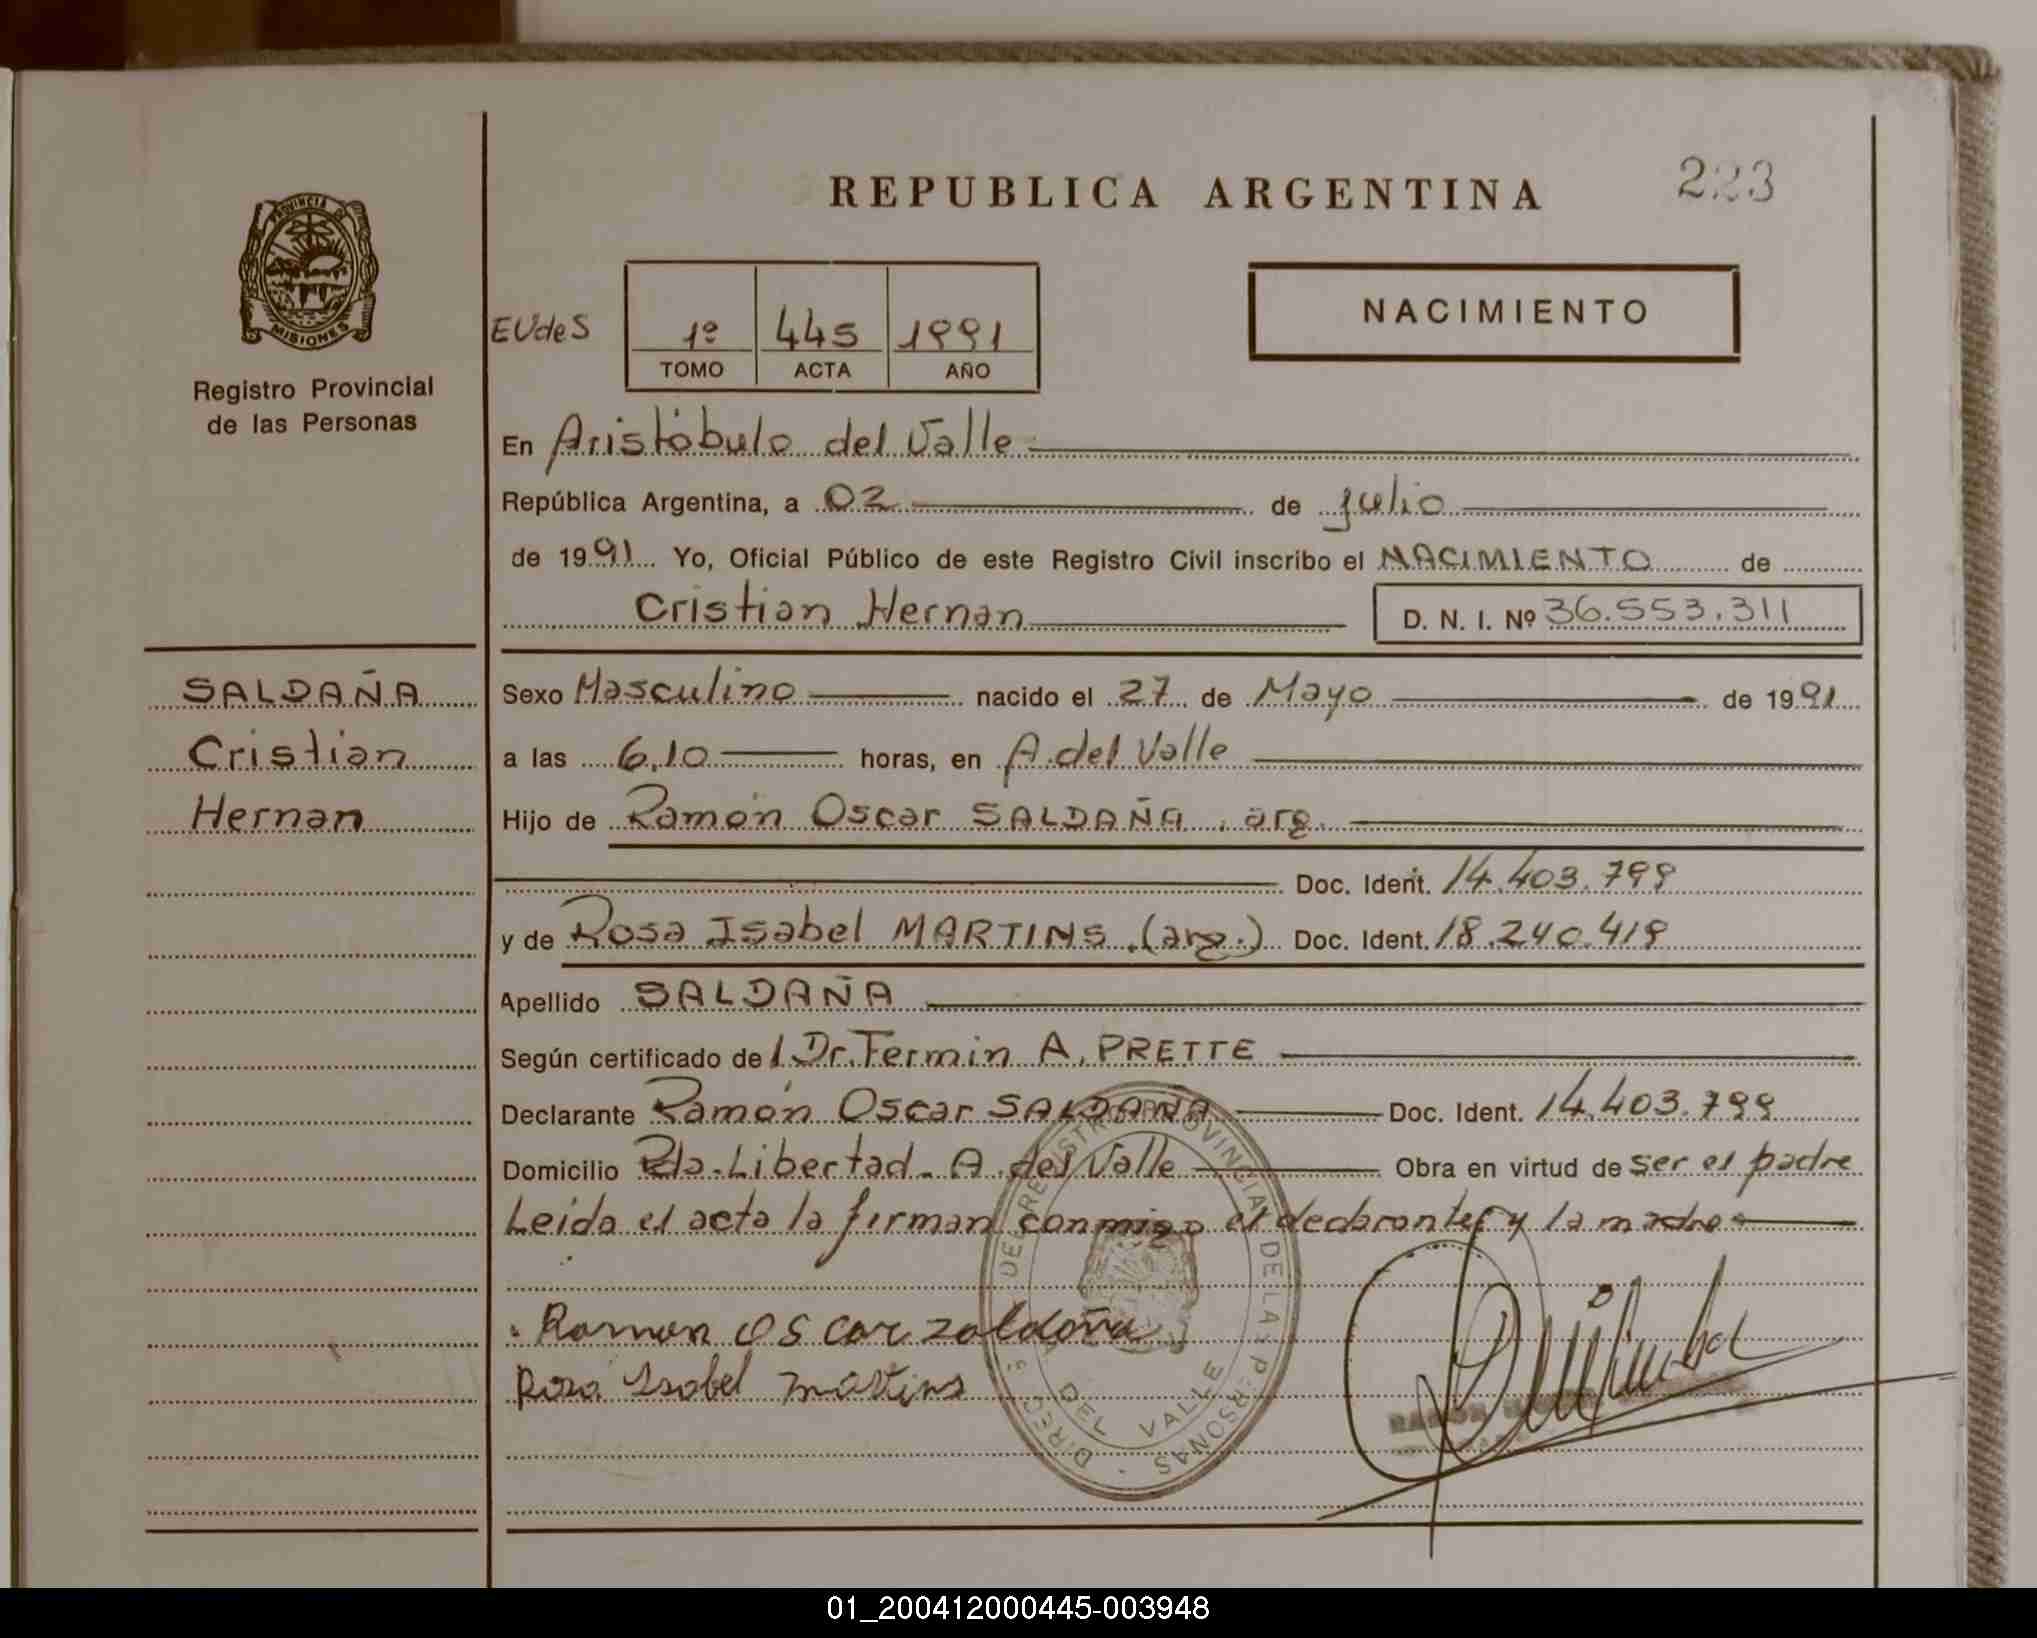 REPUBLICA ARGENTINA
223
PROVINCIA DE
MISIONES
Registro Provincial
de las Personas
EUdeS
1º 445 1991
TOMO ACTA AÑO
NACIMIENTO
En Aristóbulo del Valle
República Argentina, a 02 de julio
de 1991 Yo, Oficial Público de este Registro Civil inscribo el NACIMIENTO de
Cristian Hernan D. N. I. Nº 36.553.311
SALDAÑA
Cristian
Hernan
Sexo Masculino nacido el 27 de Mayo de 1991
a las 6,10 horas, en A. del Valle
Hijo de Ramón Oscar SALDAÑA, arg.
Doc. Ident. 14.403.799
y de Rosa Isabel MARTINS (arg.) Doc. Ident. 18.240.419
Apellido SALDAÑA
Según certificado de l Dr. Fermin A. PRETTE
Declarante Ramón Oscar SALDAÑA Doc. Ident. 14.403.799
Domicilio Pda. Libertad - A. del Valle Obra en virtud de ser el padre
Leida el acta la firman conmigo el declarante y la madre
Ramon Oscar zaldaña
Rosa Isabel martins
DEL REGISTRO PROVINCIAL DE LAS PERSONAS
DEL VALLE
RAMON
01_200412000445-003948